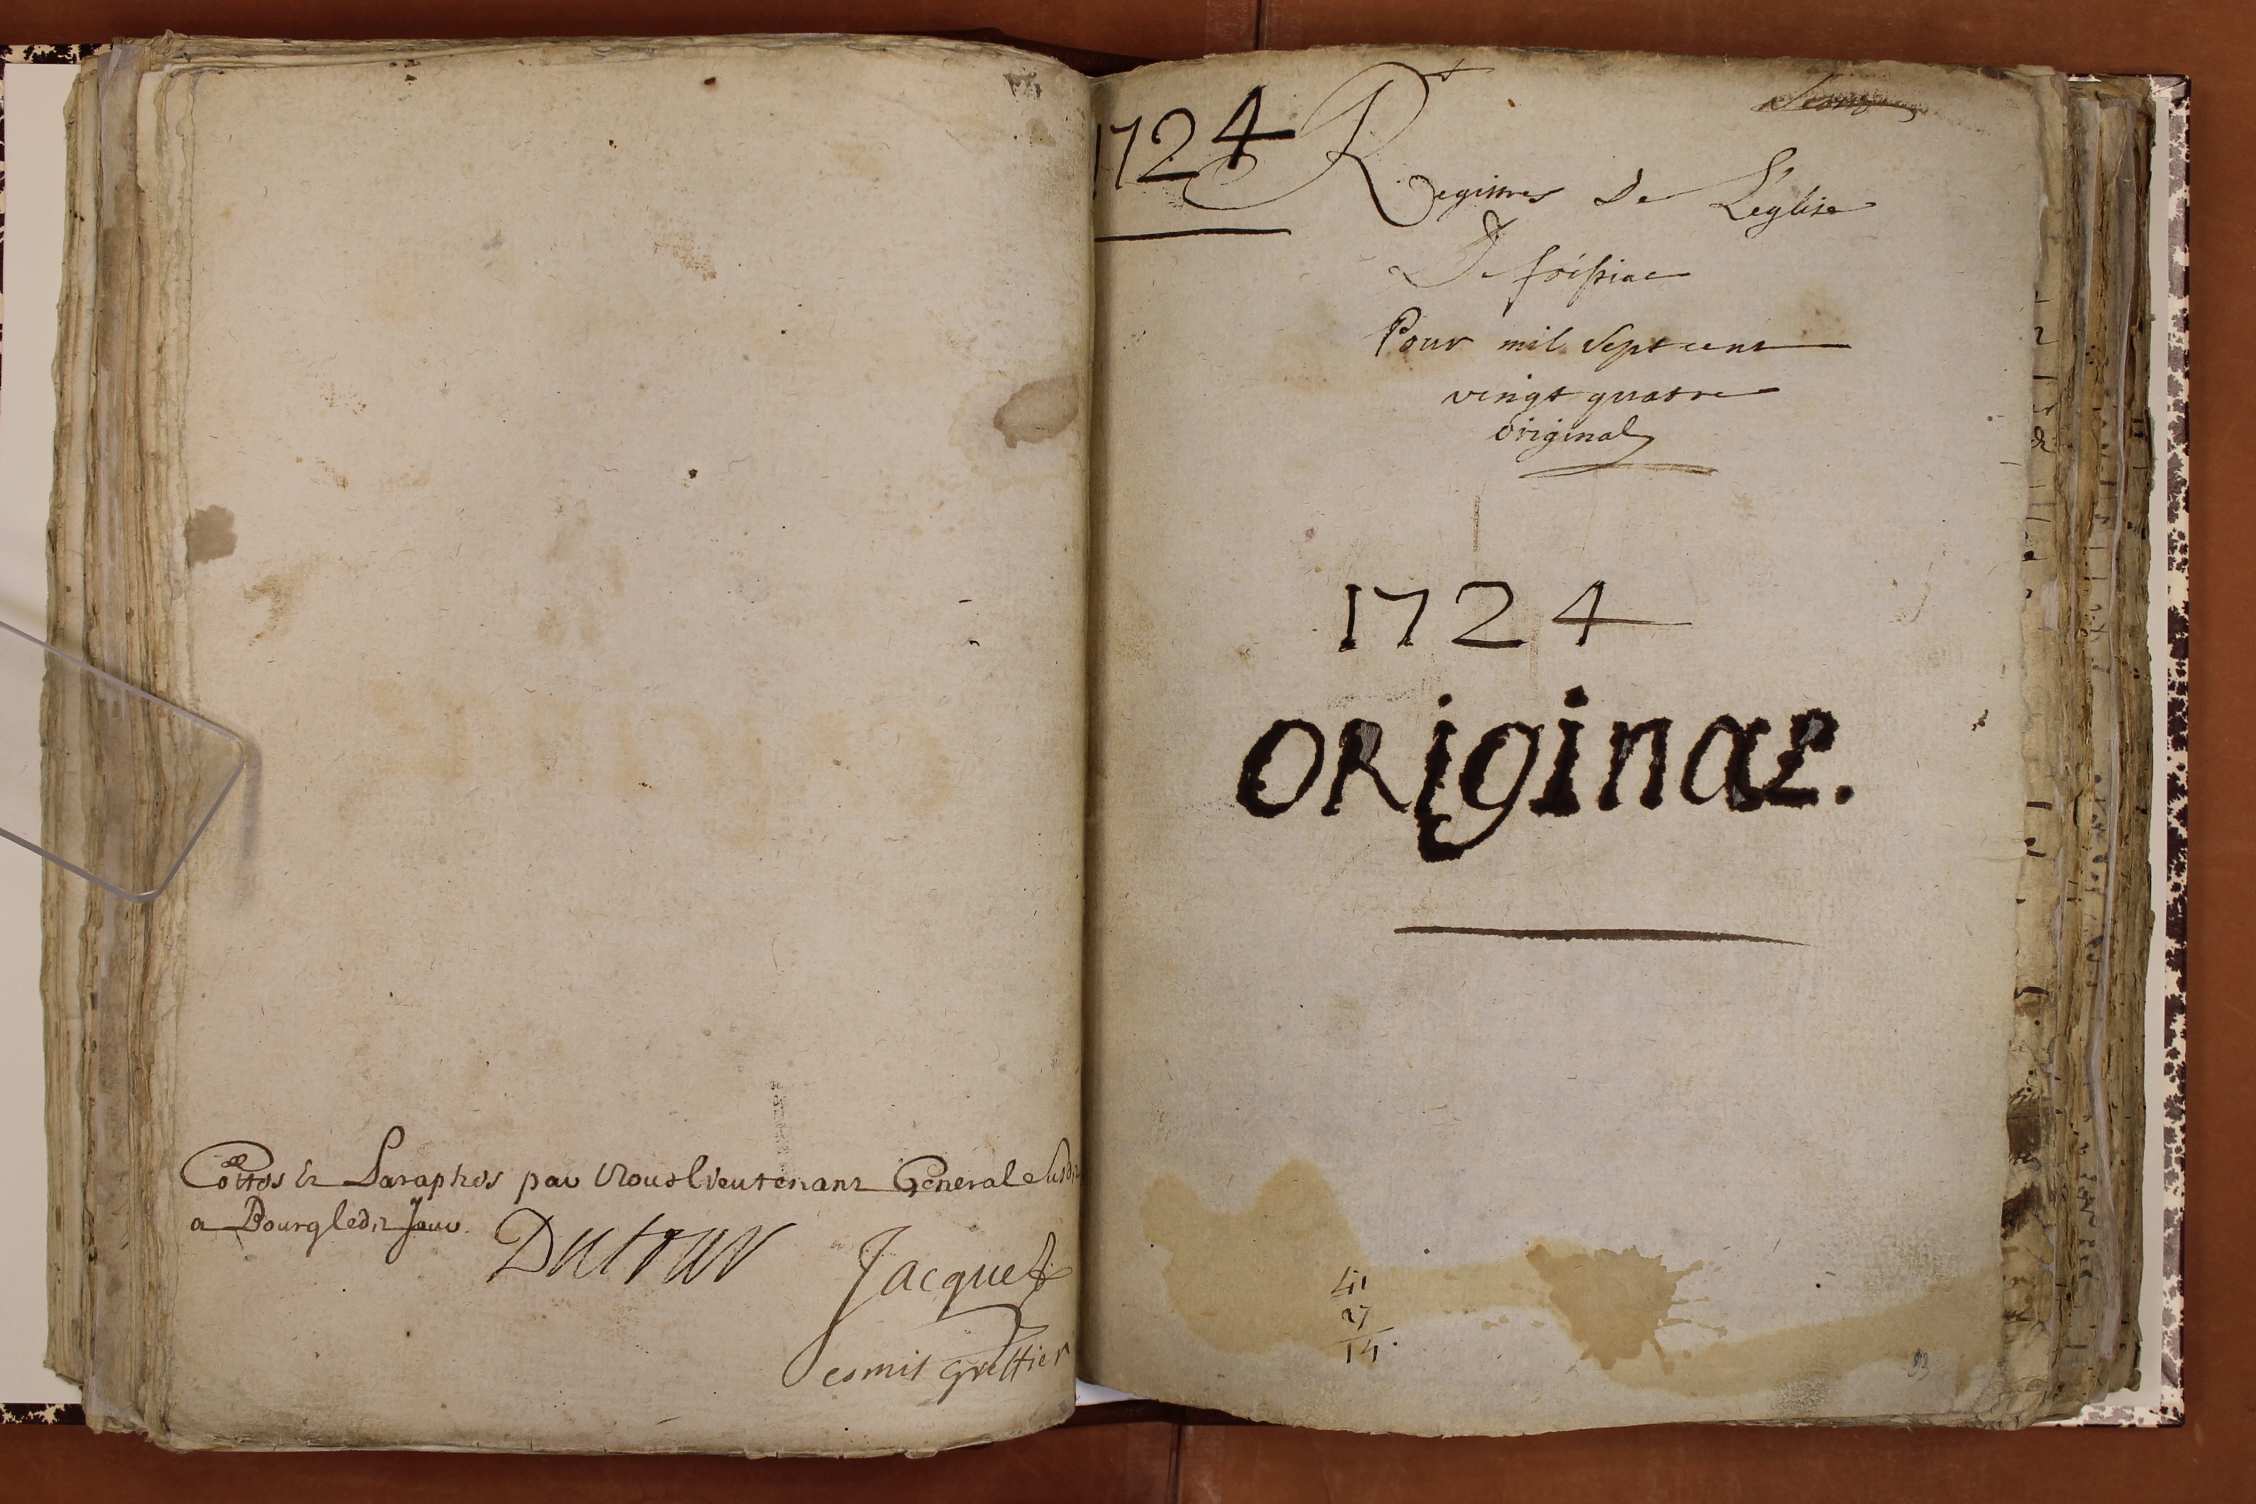 Cottés Et Paraphés par Nous lieutenant General Susd.
a Bourg led.t Jour.
Dutour
Jacquet
comis greffier
1724
Registres De L'eglise
De foissiac
Pour mil Sept cent
vingt quatre
original
1724
ORiginal.
41
27
14